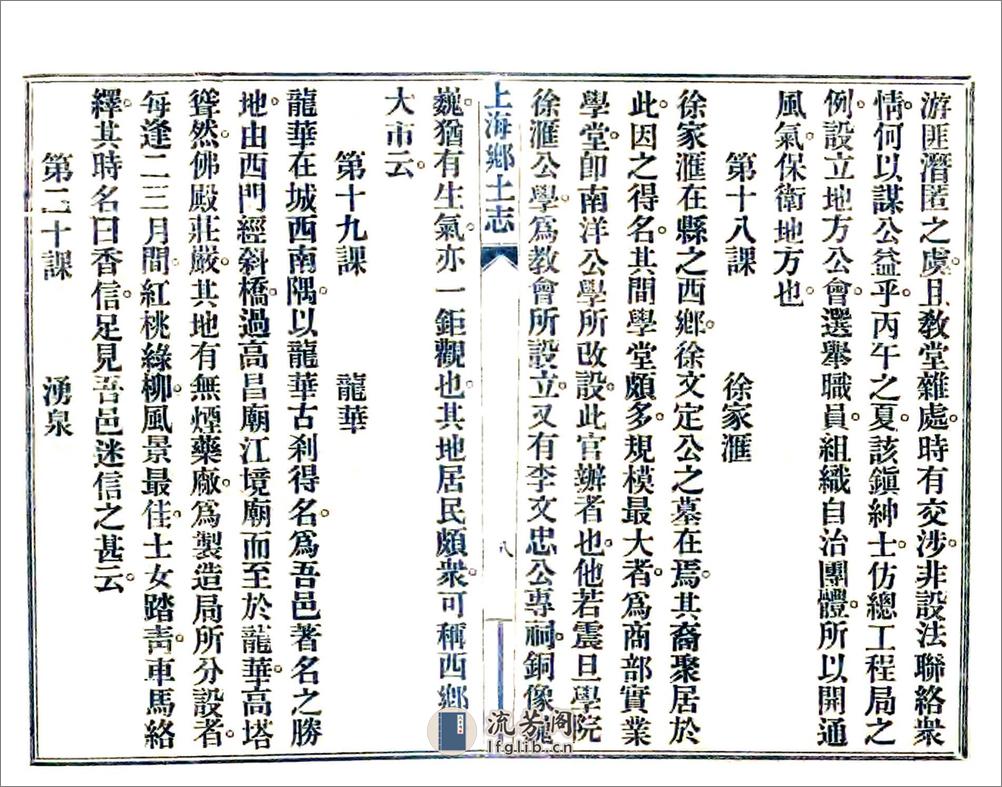 游匪潛匿之處。且教堂雜處。時有交涉。非設法聯絡衆
情。何以謀公益乎。丙午之夏。該鎮紳士。仿總工程局之
例。設立地方公會。選舉職員。組織自治團體。所以開通
風氣。保衛地方也
第十八課　徐家滙
徐家滙在縣之西鄉。徐文定公之墓在焉。其裔聚居於
此。因之得名。其間學堂頗多。規模最大者。爲商部實業
學堂。卽南洋公學所改設。此官辦者也。他若震旦學院
徐滙公學。爲教會所設立。又有李文忠公專祠。銅像巍
上海鄉土志
八
巍。猶有生氣。亦一鉅觀也。其地居民頗衆。可稱西鄉
大市云。
第十九課　龍華
龍華在城西南隅。以龍華古刹得名。爲吾邑著名之勝
地。由西門經斜橋。過高昌廟江境廟而至於龍華。高塔
聳然。佛殿莊嚴。其地有無煙藥廠。爲製造局所分設者。
每逢二三月間。紅桃綠柳。風景最佳。士女踏靑。車馬絡
繹。其時名曰香信。足見吾邑迷信之甚云。
第二十課　湧泉
流芳阁
lfglib.cn